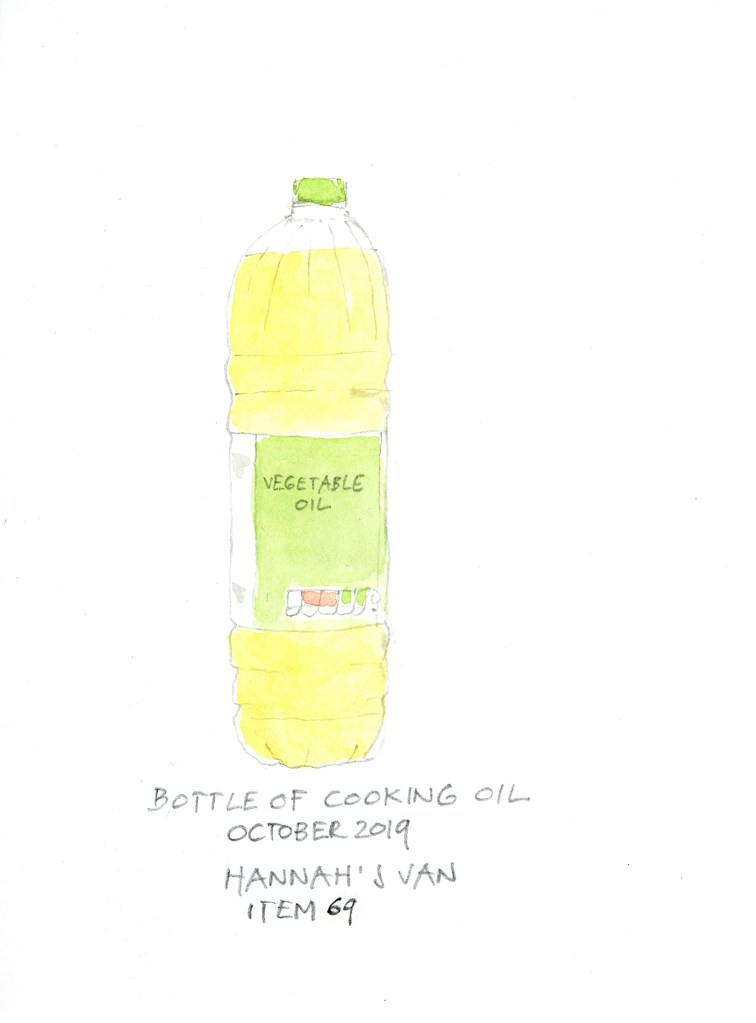 VEGETABLE
OIL
BOTTLE OF COOKING OIL
OCTOBER 2019
HANNAH'S VAN
ITEM 69